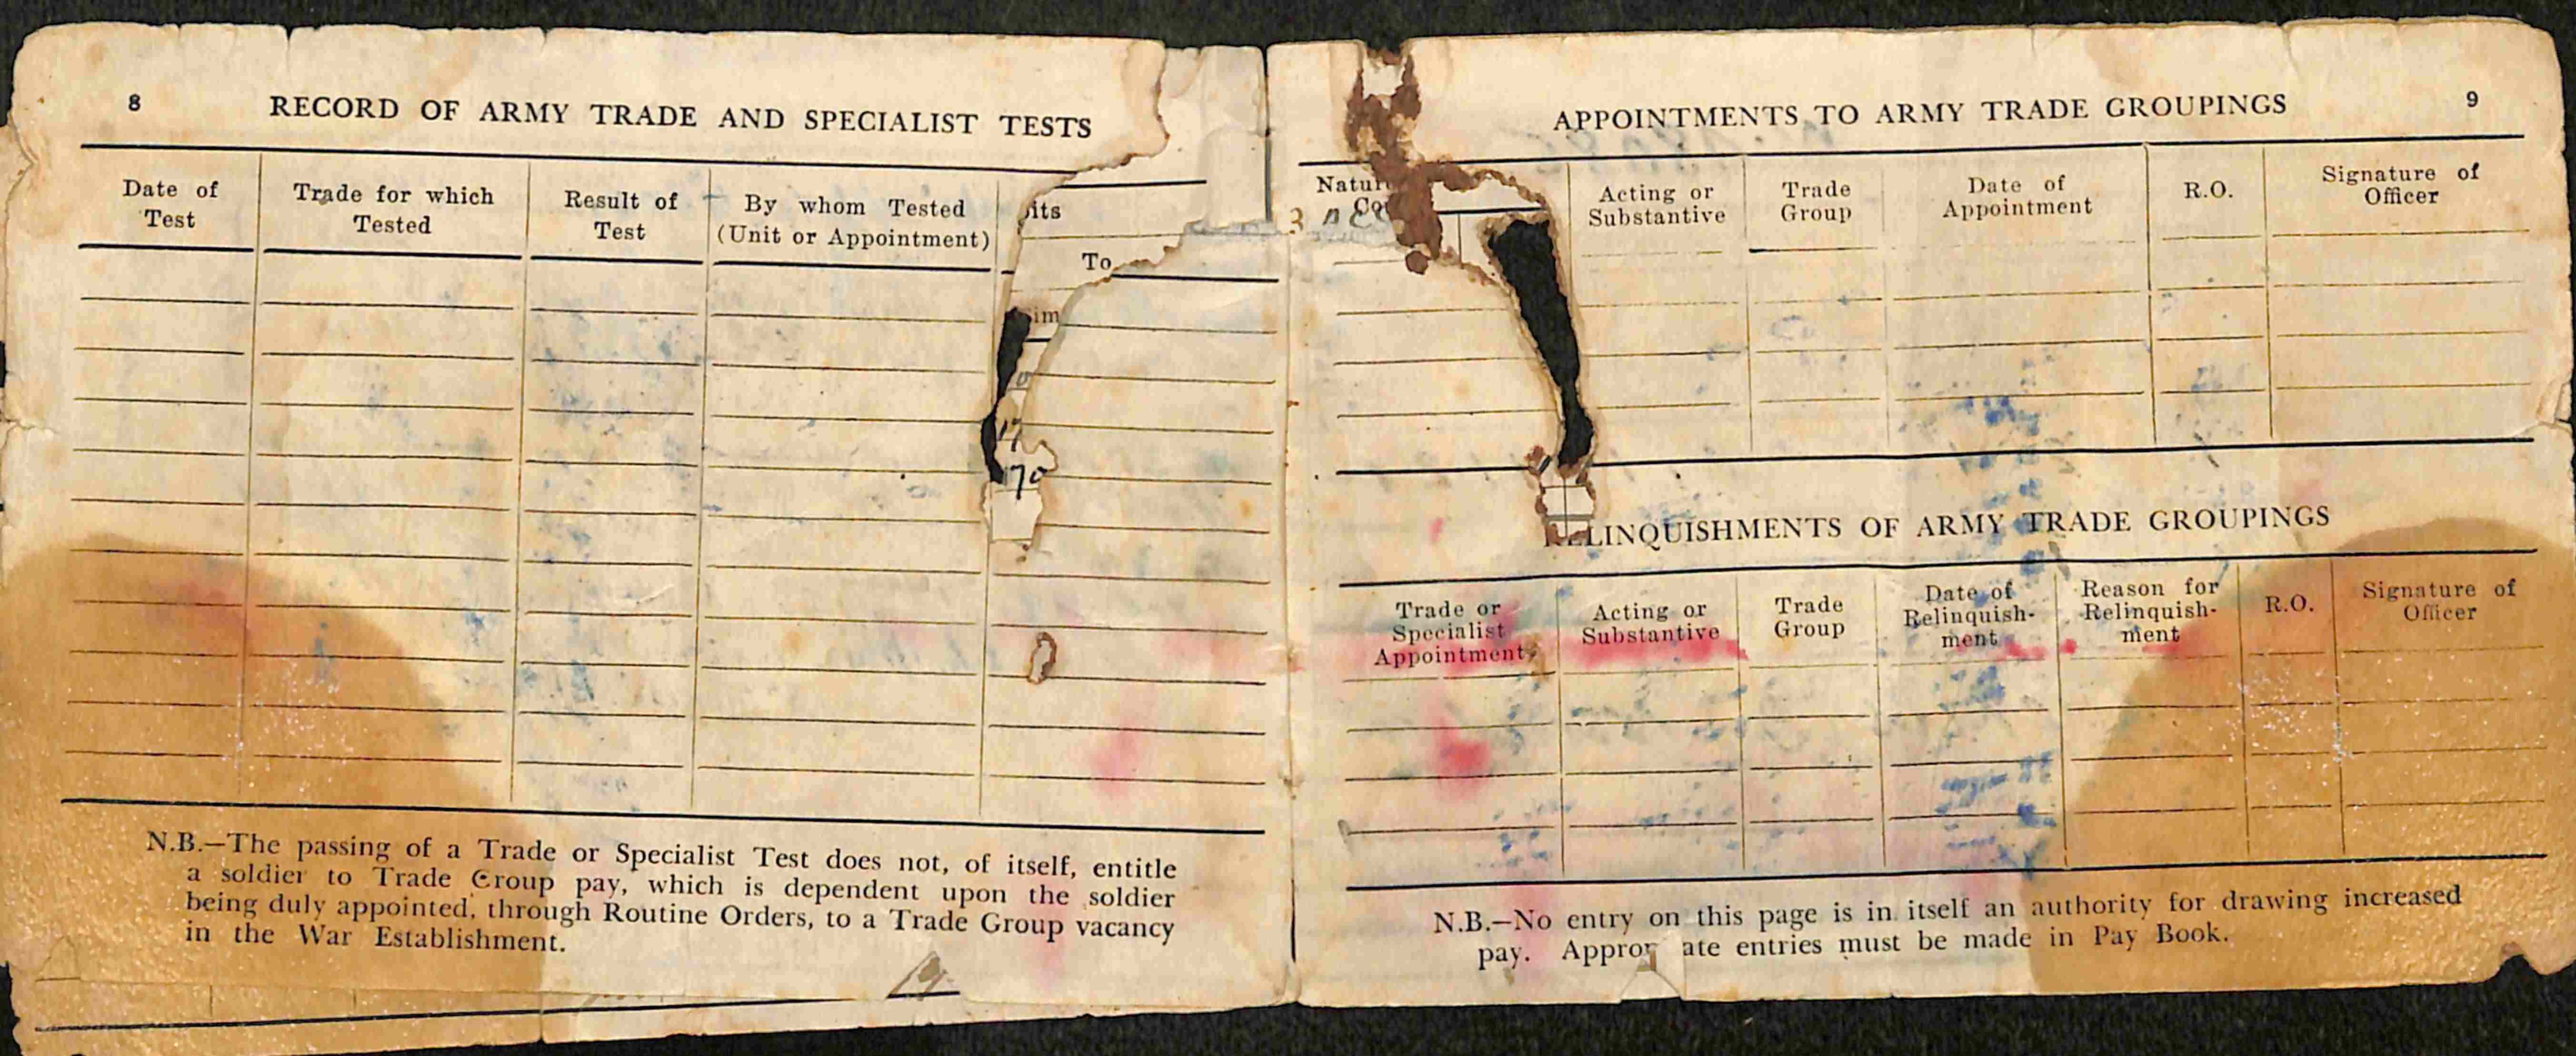 8
RECORD OF ARMY TRADE AND SPECIALIST TESTS
Date of
Test
Trade for which
Tested
Result of
Test
By whom Tested
(Unit or Appointment)
its
To
im
17
70
N.B.—The passing of a Trade or Specialist Test does not, of itself, entitle
a soldier to Trade Group pay, which is dependent upon the soldier
being duly appointed, through Routine Orders, to a Trade Group vacancy
in the War Establishment.
19
APPOINTMENTS TO ARMY TRADE GROUPINGS
9
Natur
Co
Acting or
Substantive
Trade
Group
Date of
Appointment
R.O.
Signature of
Officer
ELINQUISHMENTS OF ARMY TRADE GROUPINGS
Trade or
Specialist
Appointment
Acting or
Substantive
Trade
Group
Date of
Relinquish-
ment
Reason for
Relinquish-
ment
R.O.
Signature of
Officer
N.B.—No entry on this page is in itself an authority for drawing increased
pay. Appro ate entries must be made in Pay Book.